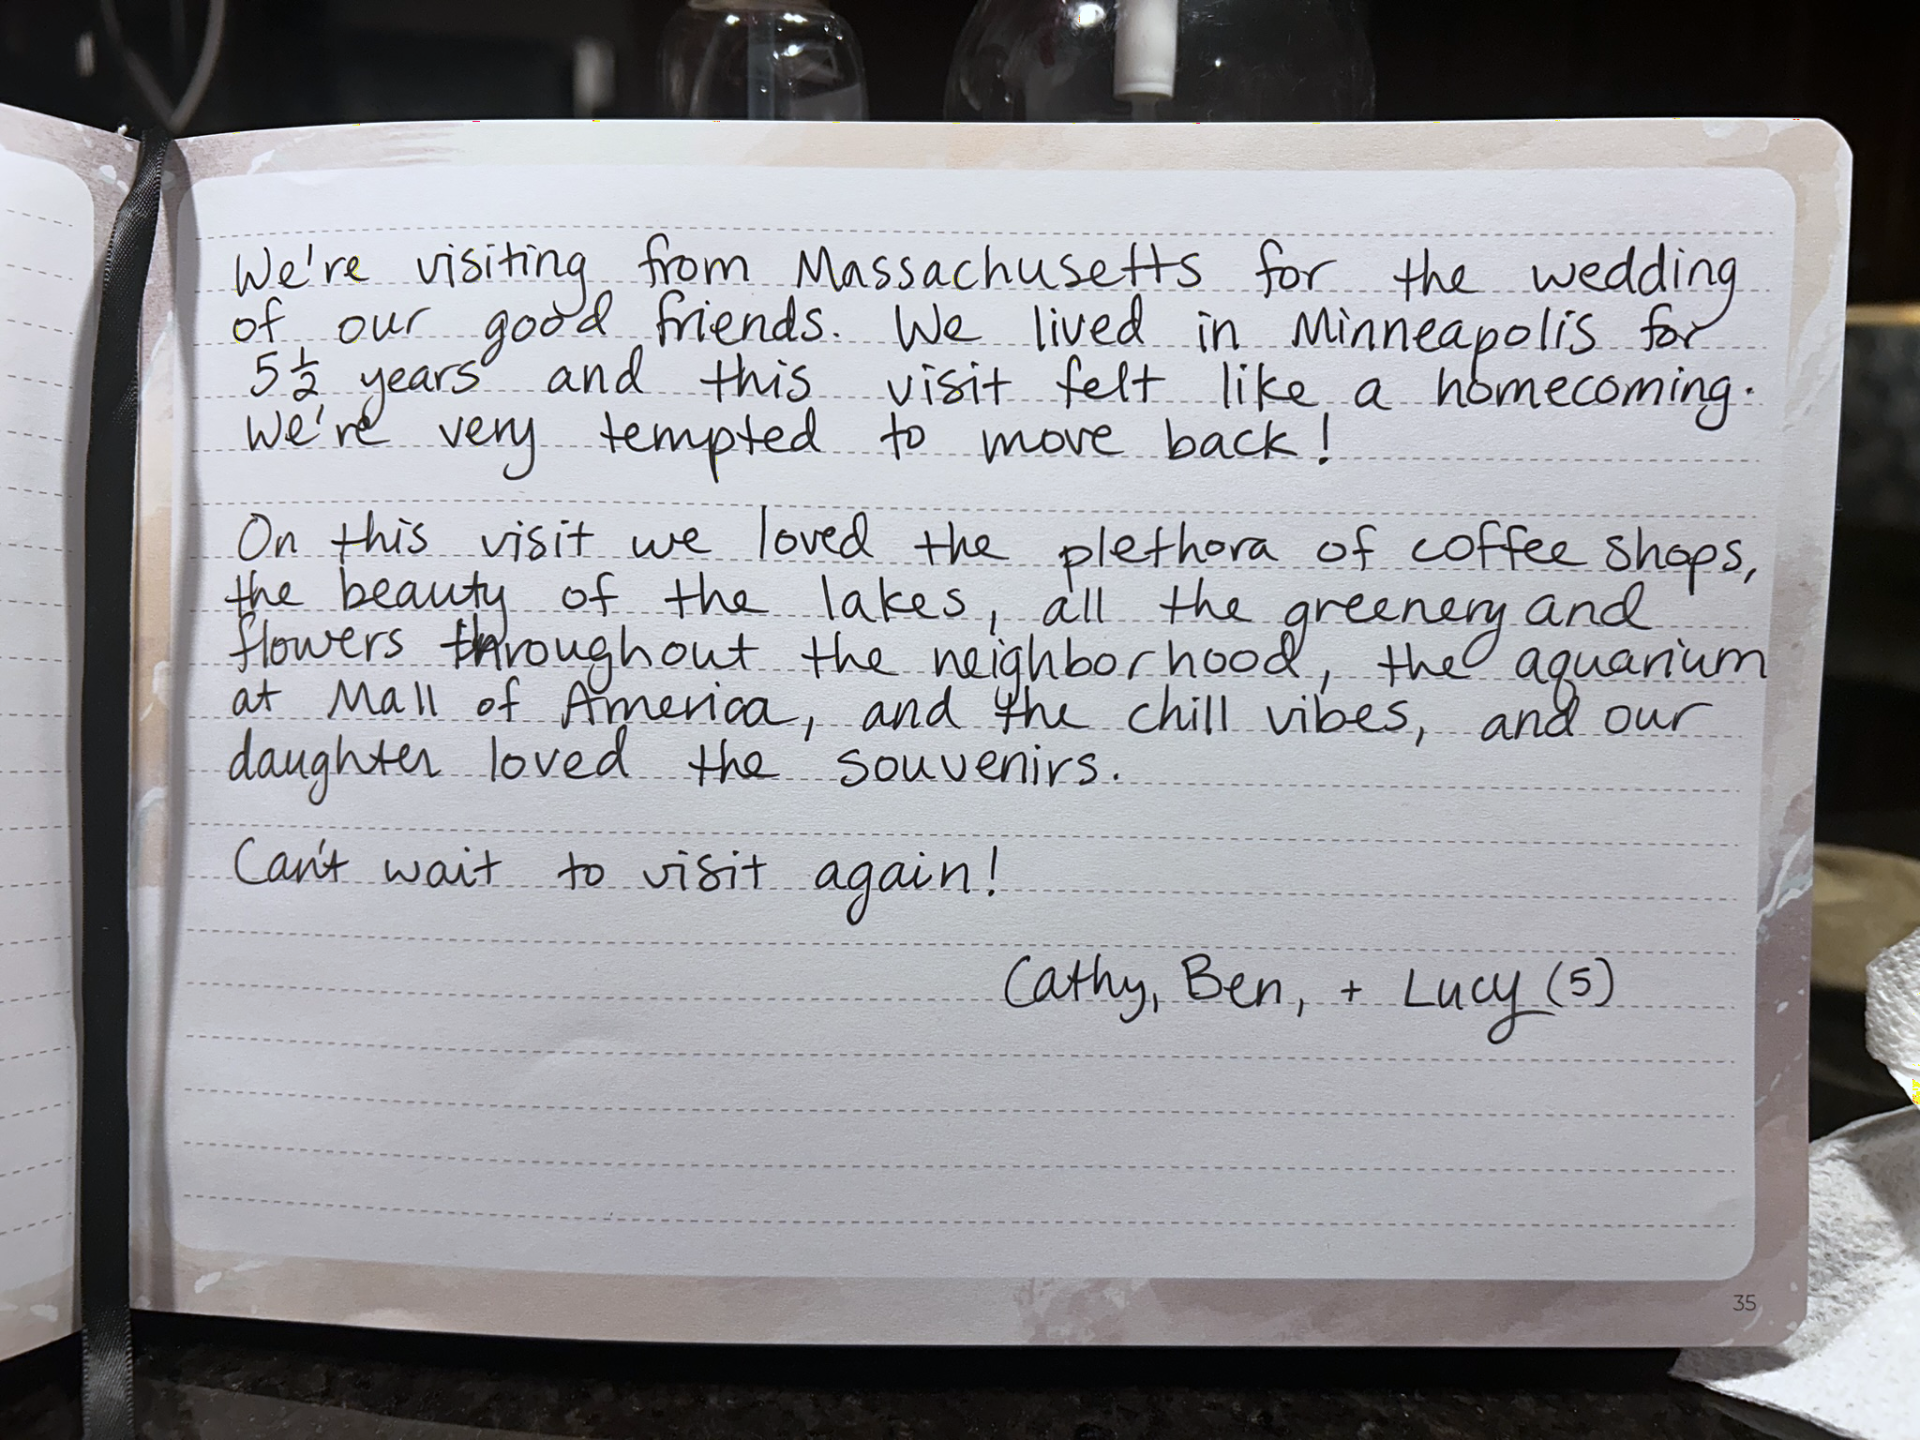 We're visiting from Massachusetts for the wedding
of our good friends. We lived in Minneapolis for
5½ years and this visit felt like a homecoming.
We're very tempted to move back!
On this visit we loved the plethora of coffee shops,
the beauty of the lakes, all the greenery and
flowers throughout the neighborhood, the aquarium
at Mall of America, and the chill vibes, and our
daughter loved the souvenirs.
Can't wait to visit again!
Cathy, Ben, + Lucy (5)
35